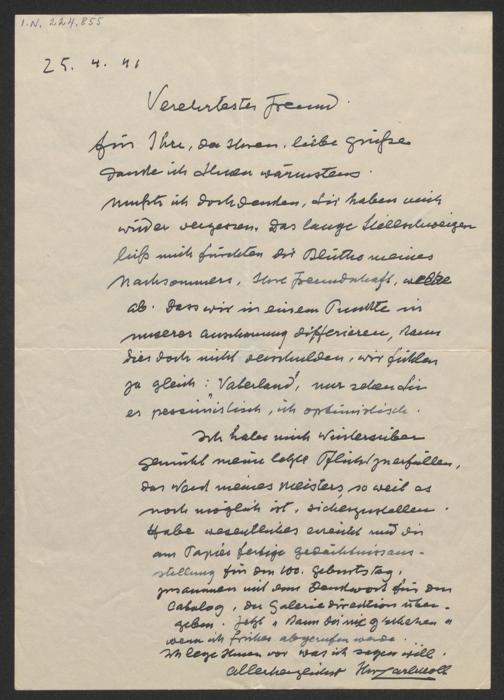 I.N. 224.855
25. 4. 41
Verehrtester Freund.
für Ihre, der Ihren, liebe Grüsse
danke ich Ihnen wärmstens.
Musste ich doch denken, Sie haben mich
wieder vergessen. Das lange Stillschweigen
liess mich fürchten die Blüthe meines
Nachsommers, Ihre Freundschaft, welke
ab. Dass wir in einem Punkte in
unserer Anschauung differieren, kann
dies doch nicht verschulden, wir fühlen
ja gleich: Vaterland!, nur sehen Sie
es pessimistisch, ich optimistisch.
Ich habe mich Wintersüber
gemüht meine letzte Pflicht zu erfüllen,
das Werk meines Meisters, so weit es
noch möglich ist, sicherzustellen.
Habe wesentliches erreicht und die
am Papier fertige Gedächtnisaus-
stellung für den 100. Geburtstag,
zusammen mit dem Denkwort für den
Catalog, der Galeriedirektion über-
geben. Jetzt "kann bei nix g'schehen"
wenn ich früher abgerufen werde.
Ich lege Ihnen vor was ich sagen will.
Allerherzlichst Ihr Carl Moll